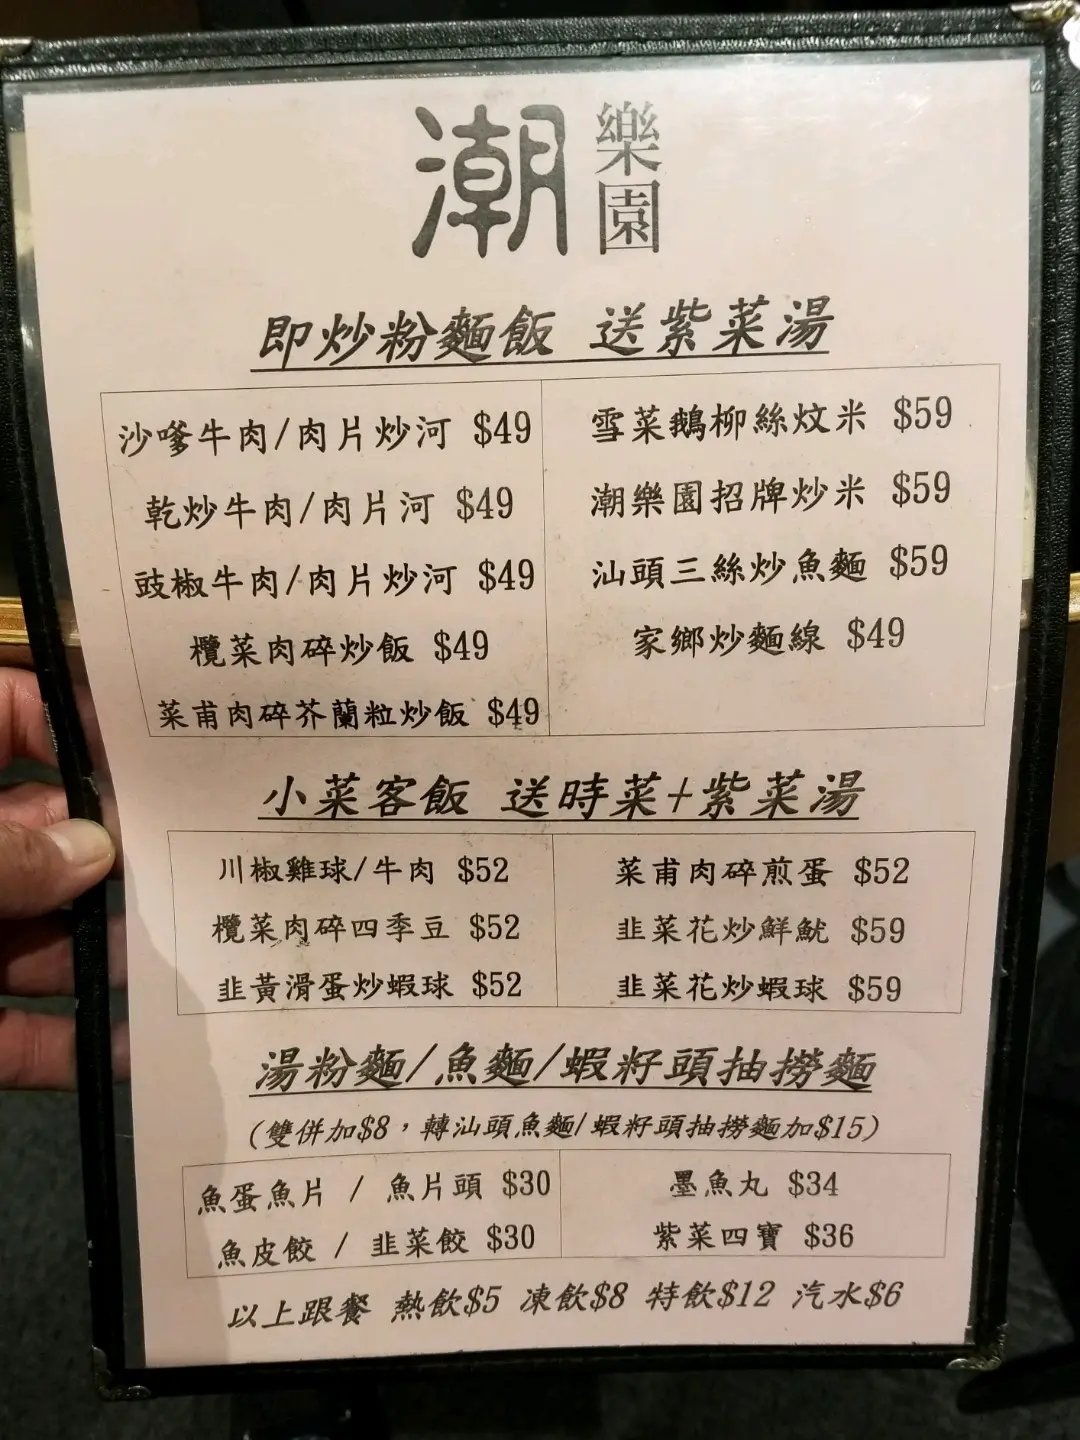 潮樂園
即炒粉麵飯 送紫菜湯
沙嗲牛肉/肉片炒河 $49
乾炒牛肉/肉片河 $49
豉椒牛肉/肉片炒河 $49
欖菜肉碎炒飯 $49
菜甫肉碎芥蘭粒炒飯 $49
雪菜鵝柳絲炆米 $59
潮樂園招牌炒米 $59
汕頭三絲炒魚麵 $59
家鄉炒麵線 $49
小菜客飯 送時菜+紫菜湯
川椒雞球/牛肉 $52
欖菜肉碎四季豆 $52
韭黃滑蛋炒蝦球 $52
菜甫肉碎煎蛋 $52
韭菜花炒鮮魷 $59
韭菜花炒蝦球 $59
湯粉麵/魚麵/蝦籽頭抽撈麵
(雙併加$8，轉汕頭魚麵/蝦籽頭抽撈麵加$15)
魚蛋魚片 / 魚片頭 $30
魚皮餃 / 韭菜餃 $30
墨魚丸 $34
紫菜四寶 $36
以上跟餐 熱飲$5 凍飲$8 特飲$12 汽水$6